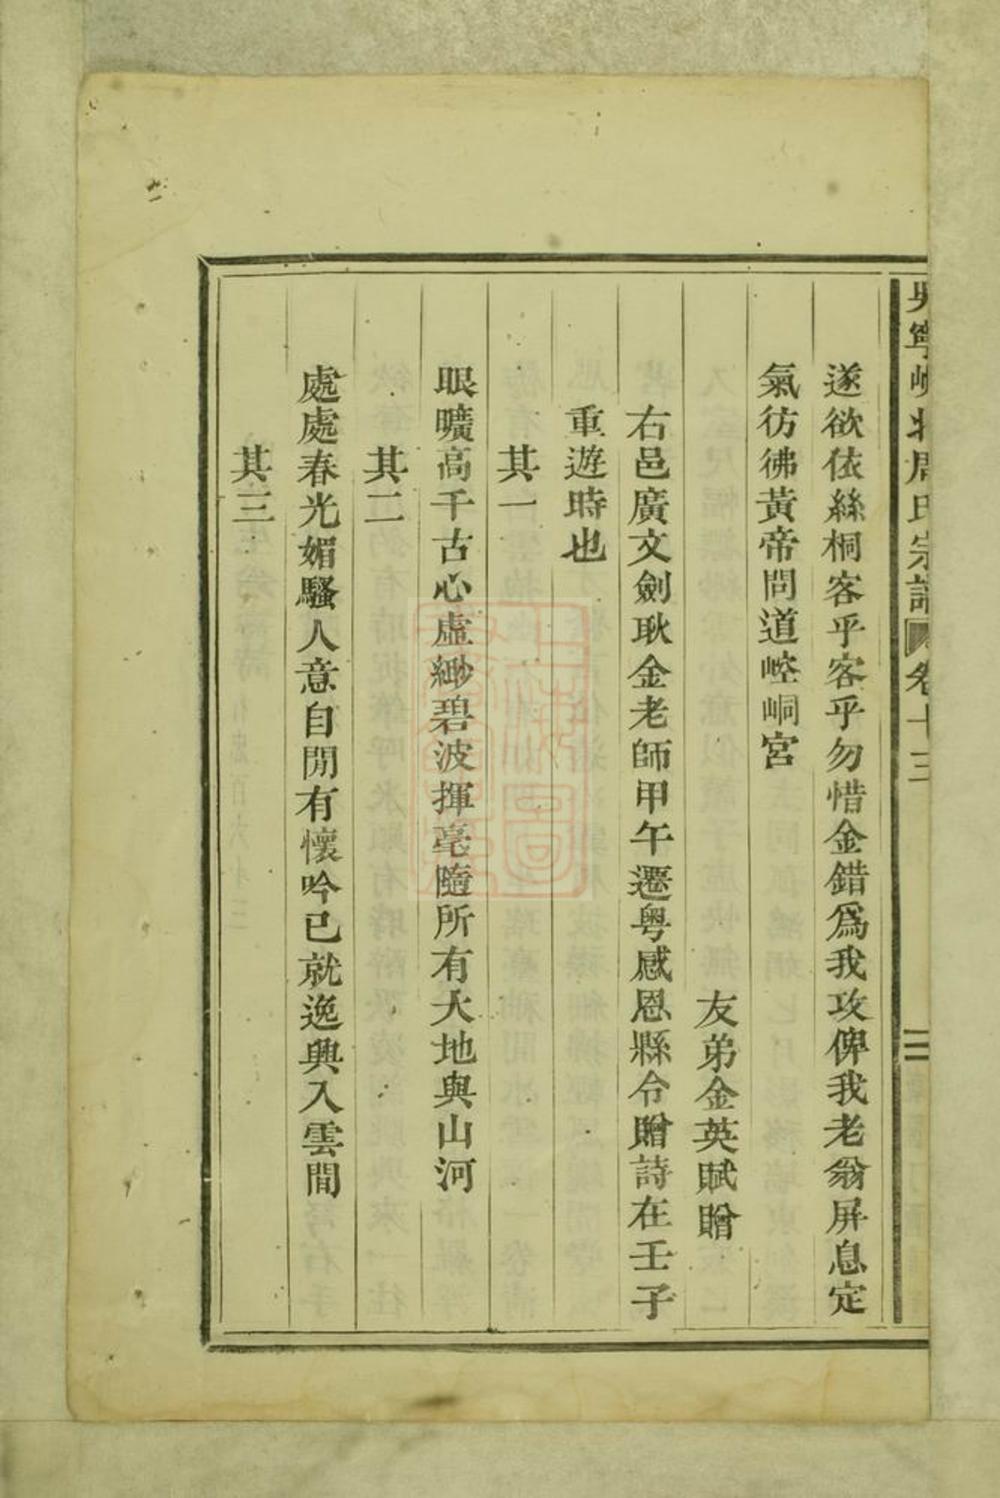 吳寧㠘北周氏宗譜 卷十三 二
遂欲依絲桐客乎客乎勿惜金錯爲我攻俾我老翁屏息定
氣彷彿黃帝問道崆峒宮
友弟金英賦贈
右邑廣文劍耿金老師甲午遷粤感恩縣令贈詩在壬子
重遊時也
其一
眼曠高千古心虛緲碧波揮毫隨所有大地與山河
其二
處處春光媚騷人意自閒有懷吟已就逸興入雲間
其三